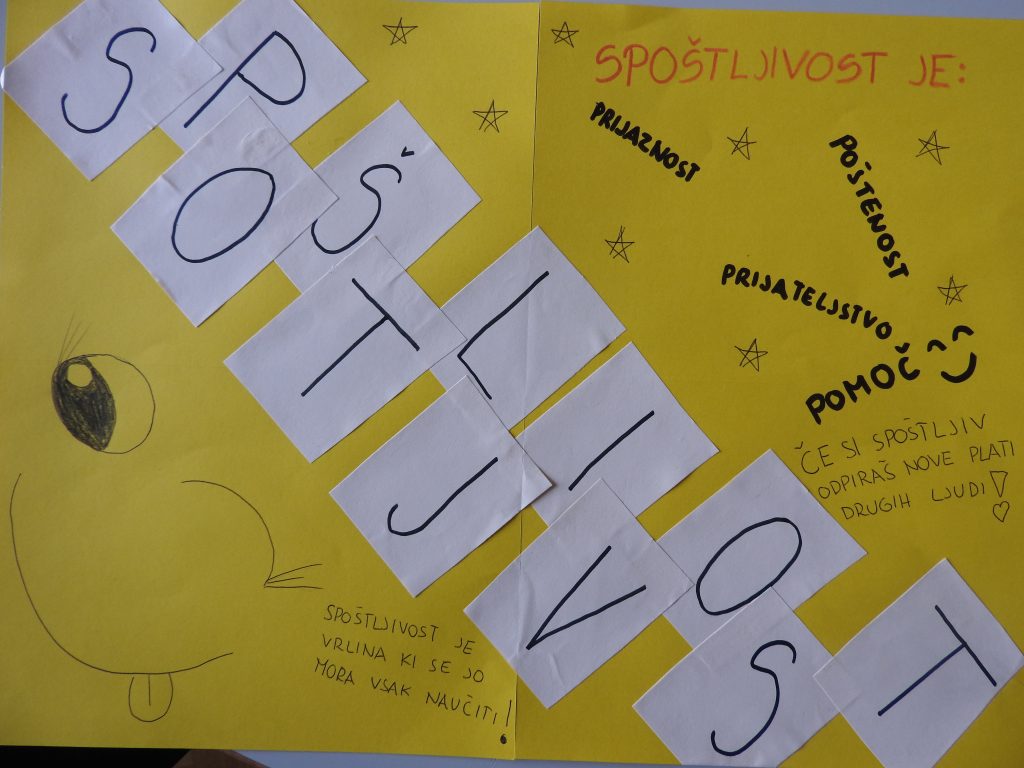 SPOŠTLJIVOST
SPOŠTLJIVOST JE:
PRIJAZNOST
POŠTENOST
PRIJATELJSTVO
POMOČ
ČE SI SPOŠTLJIV
ODPIRAŠ NOVE PLATI
DRUGIH LJUDI!
SPOŠTLJIVOST JE
VRLINA KI SE JO
MORA VSAK NAUČITI!
6